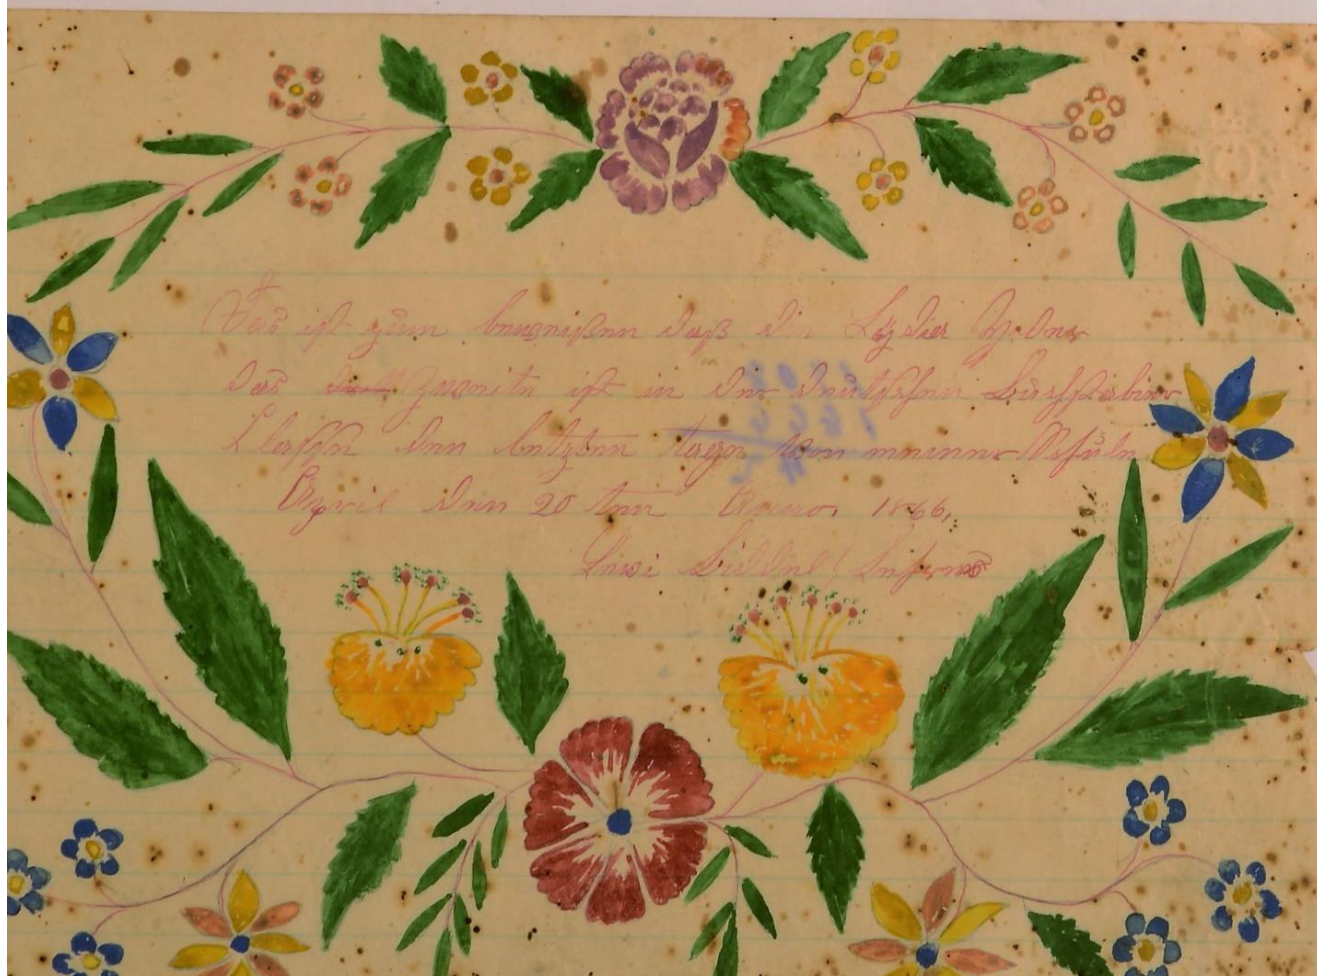 Das ist zum daß die Lydia Yoder
das Zweite ist in der deutschen Buchstabier
Classen den letzten tagen von meiner Schule
April den 20 ten Anno 1866,
Levi